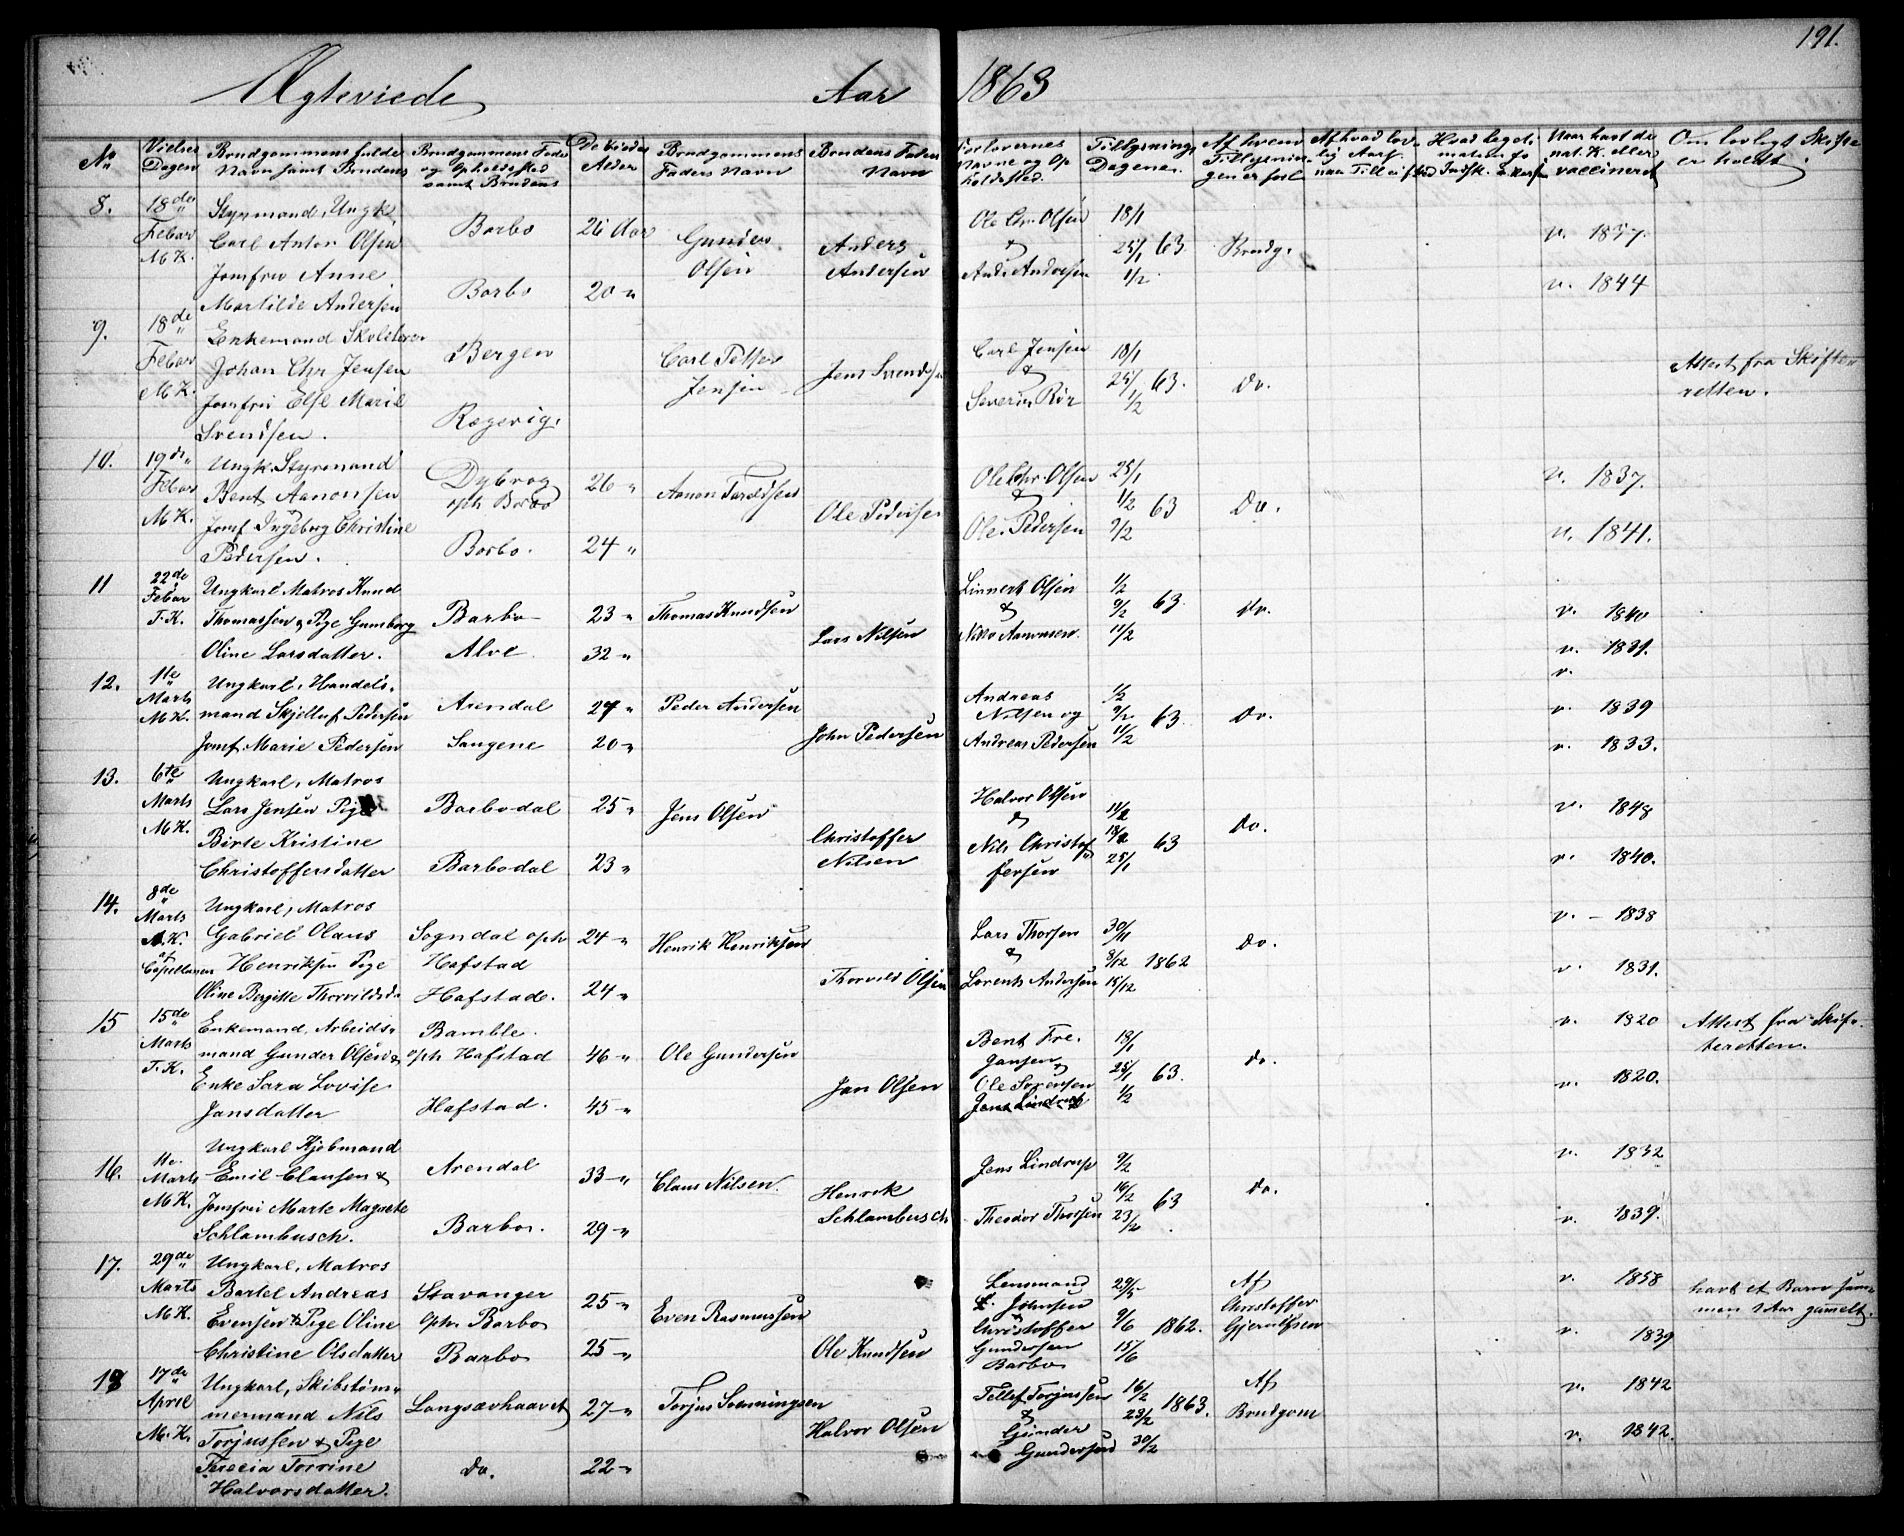 191.
Ægteviede Aar 1863
No Vielses Dagen Brudgommens fulde Navn samt Brudens Brudgommens Føde og Opholdssted samt Brudens De Viedes Alder Brudgommens Faders Navn Brudens Faders Navn Forlovernes Navne og Opholdssted. Tillysnings Dagene. Af hvem Tillysningen er forl. Naar havt de nat. K. eller vaccineret Om lovligt Skifte er holdt
8. 18de Febar M.K. Styrmand, Ungk. Carl Anton Olsen Barbo 26 Aar Gunder Olsen Anders Andersen Ole Chr. Olsen & Ands. Andersen 18/1 25/1 1/2 63 Brudg. v. 1837.
Jomfru Anne Martilde Andersen Barbo 20 " v. 1844
9. 18de Febar M.K. Enkemand Skolelærer Johan Chr Jensen Bergen Carl Petter Jensen Jens Svendsen Carl Jensen & Severin Rør 18/1 25/1 1/2 63. Do. Attest fra Skifteretten.
Jomfru Else Marie Svendsen. Rægevig.
10. 19de Febar M.K. Ungk. Styrmand Bent Aanonsen Dybvog oph Barbo 26 " Aanon Taraldsen Ole Pedersen Ole Chr Olsen & Ole Pedersen 25/1 1/2 9/2 63 Do. v. 1837.
Jomf Ingeborg Christine Pedersen. Barbo. 24 " v. 1841.
11 22de Febar T.K. Ungkarl Matros Knud Thomassen & Pige Gunborg Barbo 23 " Thomas Knudsen Lars Nilsen Linnert Olsen & Nils Aanonsen. 1/2 9/2 11/2 63. Do. v. 1840
Oline Larsdatter. Alve 32 " v. 1831.
v.
12. 1te Marts M.K. Ungkarl, Handelsmand Skjelluf Pedersen Arendal 27 " Peder Andersen John Pedersen Andreas Nilsen og Andreas Pedersen 1/2 9/2 11/2 63. Do. v. 1839
Jomf Marie Pedersen Langene 20 " v. 1833.
13. 6te Marts M.K. Ungkarl, Matros Lars Jensen Pige Barbodal 25 " Jens Olsen Christoffer Nilsen Halvor Olsen & Nils Christoffersen 11/2 18/2 25/1 63 Do. v. 1848
Birte Kristine Christoffersdatter Barbodal 23 " v. 1840.
14. 8de Marts M.K. af Capellanen Ungkarl, Matros Gabriel Olaus Henriksen Pige Sogndal oph Hafstad 24 " Henrik Henriksen Thorvild Olsen Lars Thorsen & Lorents Andersen 30/11 8/12 15/12 1862 Do. v. – 1838
Oline Birgitte Thorvildsd. Hafstad. 24 " v. 1831.
15 15de Marts T.K. Enkemand, Arbeidsmand Gunder Olsen & Bamble. oph. Hafstad 46 " Ole Gundersen Jan Olsen Bent Jansen & Ole Sørensen Jens Lindrup 18/1 25/1 1/2 63. Do. v. 1820 Attest fra Skifteretten.
Enke Sara Lovise Jansdatter Hafstad. 45 " v. 1820.
16. 11e. Marts M.K. Ungkarl Kjøbmand Emil Clausen & Arendal 33 " Claus Nilsen. Henrik Schlambusch Jens Lindrup Theodor Thorsen 9/2 16/2 23/2 63 Do. v. 1832
Jomfru Marte Magrete Schlambusch. Barbo. 29 " v. 1839.
17. 29de Marts M.K. Ungkarl, Matros Bartel Andreas Evensen & Pige Oline Stavanger Oph. Barbo 25 " Even Rasmussen Ole Knudsen Lensmand L. Johnsen & Christoffer Gundersen Barbo 29/5 9/6 15/6 1862. Af Christoffer Gjerulfsen v. 1858 havt et Barn sammen 1 Aar gammelt.
Christine Olsdatter Barbo 25 " v. 1839
18 17de April M.K. Ungkarl, Skibstømmermand Nils Torjussen & Pige Langsævhaavet 27 " Torjus Svenningsen Halvor Olsen Tellef Torjussen & Gunder Gundersen 16/2 23/2 30/2 1863. Af Brudgom v. 1842
Terecia Torrine Halvorsdatter. Do. 22 " v. 1842.